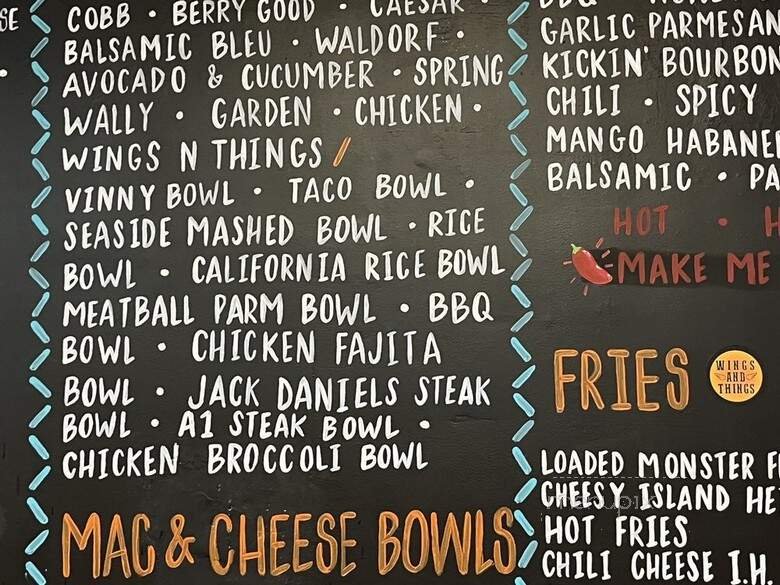 SE
COBB · BERRY GOOD · CAESAR ·
BALSAMIC BLEU · WALDORF ·
AVOCADO & CUCUMBER · SPRING
WALLY · GARDEN · CHICKEN ·
WINGS N THINGS /
VINNY BOWL · TACO BOWL ·
SEASIDE MASHED BOWL · RICE
BOWL · CALIFORNIA RICE BOWL
MEATBALL PARM BOWL · BBQ
BOWL · CHICKEN FAJITA
BOWL · JACK DANIELS STEAK
BOWL · A1 STEAK BOWL ·
CHICKEN BROCCOLI BOWL
MAC & CHEESE BOWLS
GARLIC PARMESAN
KICKIN' BOURBON
CHILI · SPICY
MANGO HABANE
BALSAMIC · PA
HOT · H
MAKE ME
FRIES
WINGS
AND
THINGS
LOADED MONSTER F
CHEESY ISLAND HE
HOT FRIES
CHILI CHEESE I.H.